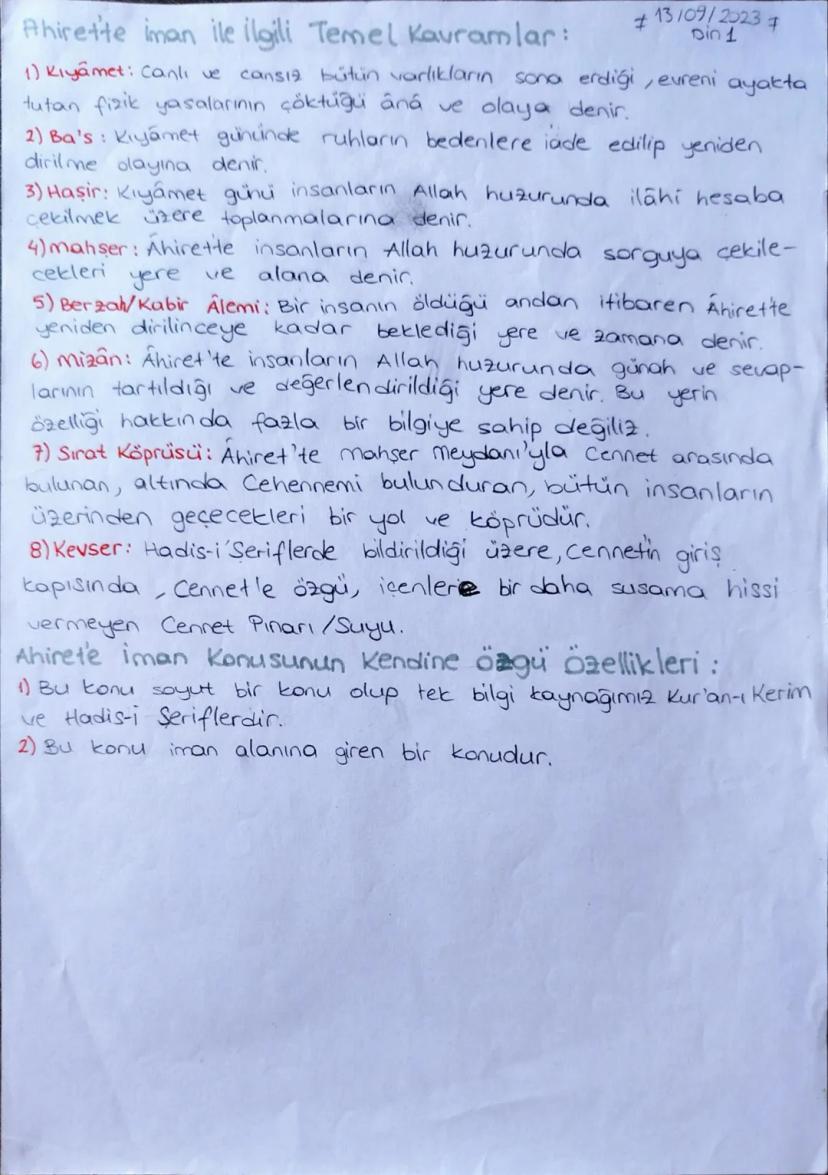 Ahirette iman ile ilgili Temel Kavramlar:
13/09/2023
Din 1
1) Kıyâmet: Canlı ve cansız bütün varlıkların sona erdiği, evreni ayakta
tutan fizik yasalarının çöktüğü âná ve olaya denir.
2) Ba's: Kıyâmet gününde ruhların bedenlere iâde edilip yeniden
dirilme olayına denir.
3) Haşir: Kıyâmet günü insanların Allah huzurunda ilâhi hesaba
çekilmek üzere toplanmalarına denir.
4) mahşer: Âhirette insanların Allah huzurunda sorguya çekile-
cekleri yere ve alana denir.
5) Berzah/Kabir Âlemi: Bir insanın öldüğü andan itibaren Âhirette
yeniden dirilinceye kadar beklediği yere ve zamana denir.
6) mizân: Âhiret'te insanların Allah huzurunda günah ve sevap-
larının tartıldığı ve değerlendirildiği yere denir. Bu yerin
özelliği hakkında fazla bir bilgiye sahip değiliz.
7) Sırat Köprüsü: Âhiret'te mahşer meydanı'yla Cennet arasında
bulunan, altında Cehennemi bulunduran, bütün insanların
üzerinden geçecekleri bir yol ve köprüdür.
8) Kevser: Hadis-i Şeriflerde bildirildiği üzere, Cennetin giriş
kapısında, Cennet'e özgü, içenlere bir daha susama hissi
vermeyen Cennet Pınarı/Suyu.
Ahiret'e iman Konusunun Kendine özgü özellikleri:
1) Bu konu soyut bir konu olup tek bilgi kaynağımız Kur'an-ı Kerim
ve Hadis-i Şeriflerdir.
2) Bu konu iman alanına giren bir konudur.